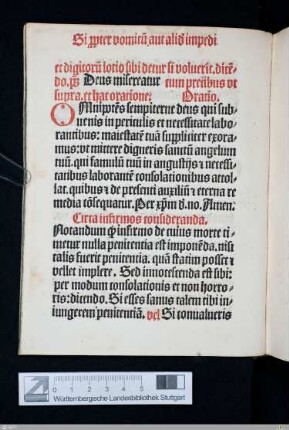 Si ꝓpter vomitū aut alid impedi
et digitorū lotio sibi detur si voluerit. dicē-
do. ps̄ Deus misereatur cum precibus vt
supra. et hac oratione: Oratio.
OMnipotēs sempiterne deus qui sub-
uenis in periculis et necessitate labo-
rantibus: maiestatē tuā suppliciter exora-
mus: vt mittere digneris sanctū angelum
tuū. qui famulū tuū in angustijs et necessi-
tatibus laborantē consolationibus attol-
lat. quibus et de presenti auxiliū et eterna re
media cōsequatur. Per xp̄m d. no. Amen.
Circa infirmos consideranda.
Notandum ꝙ infirmo de cuius morte ti-
metur nulla penitentia est imponēda. nisi
talis fuerit penitentia. quā statim posset et
vellet implere. Sed innotescenda est sibi:
per modum consolationis et non horro-
ris: dicendo. Si esses sanus talem tibi in-
iungerem penitentiā. vel Si conualueris
0 1 2 3 4 5
Württembergische Landesbibliothek Stuttgart